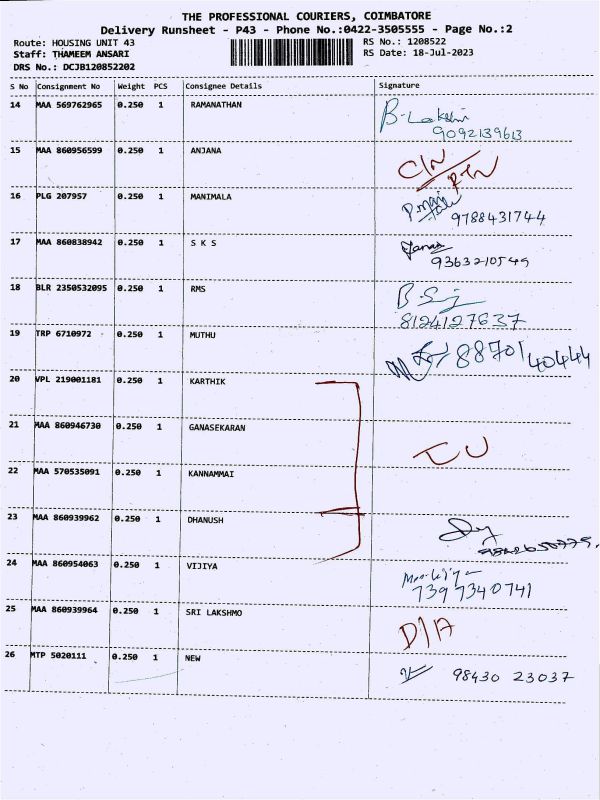 THE PROFESSIONAL COURIERS, COIMBATORE
Delivery Runsheet - P43 - Phone No.:0422-3505555 - Page No.:2
Route: HOUSING UNIT 43 RS No.: 1208522
Staff: THAMEEM ANSARI RS Date: 18-Jul-2023
DRS No.: DCJB120852202
S No Consignment No Weight PCS Consignee Details Signature
14 MAA 569762965 0.250 1 RAMANATHAN B. Lakshmi
9092139613
15 MAA 860956599 0.250 1 ANJANA C/N
RTN
16 PLG 207957 0.250 1 MANIMALA
9788431744
17 MAA 860838942 0.250 1 S K S
9363210549
18 BLR 2350532095 0.250 1 RMS
8124127637
19 TRP 6710972 0.250 1 MUTHU 8870140444
20 VPL 219001181 0.250 1 KARTHIK
21 MAA 860946730 0.250 1 GANASEKARAN
22 MAA 570535091 0.250 1 KANNAMMAI
23 MAA 860939962 0.250 1 DHANUSH
24 MAA 860954063 0.250 1 VIJIYA
7397340741
25 MAA 860939964 0.250 1 SRI LAKSHMO D/A
26 MTP 5020111 0.250 1 NEW 98430 23037